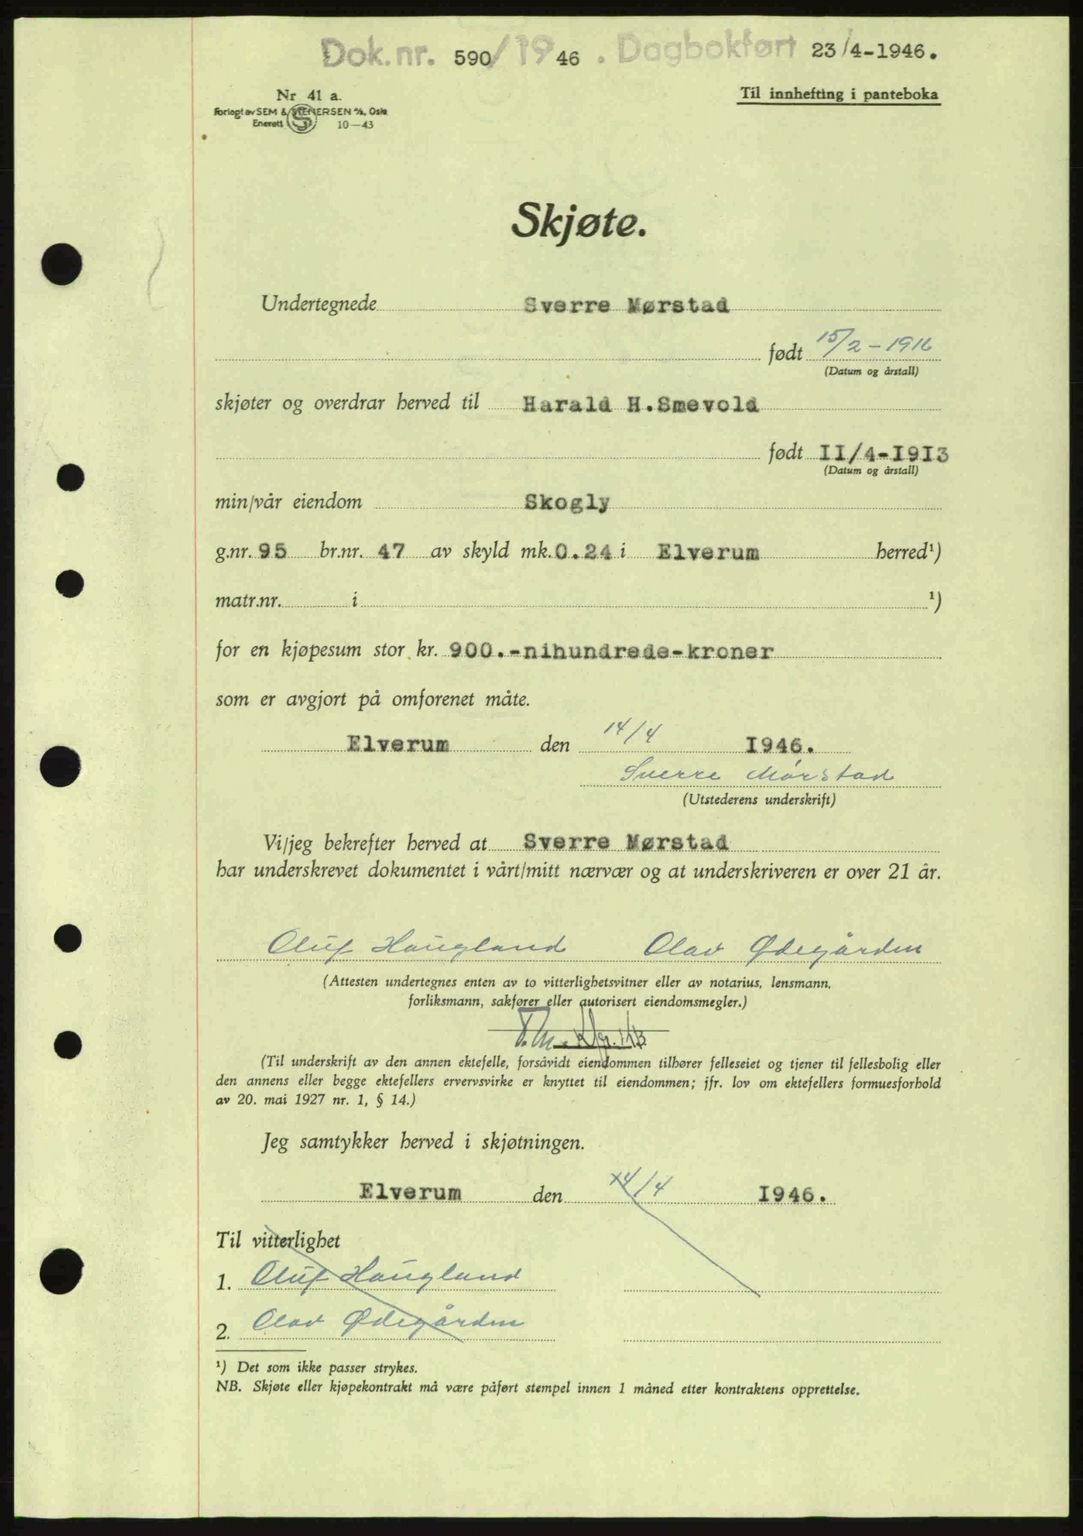 Dok.nr. 590/1946. Dagbokført 23/4-1946.
Nr 41 a.
Til innhefting i panteboka
Forlagt av SEM & STENERSEN A/S, Oslo
Enerett 10—43
Skjøte.
Undertegnede Sverre Mørstad
født 15/2-1916
(Datum og årstall)
skjøter og overdrar herved til Harald H.Smevold
født II/4-I9I3
(Datum og årstall)
min/vår eiendom Skogly
g.nr. 95 br.nr. 47 av skyld mk. 0.24 i Elverum herred¹)
matr.nr. i ¹)
for en kjøpesum stor kr. 900.-nihundrede-kroner
som er avgjort på omforenet måte.
Elverum den 14/4 I946.
Sverre Mørstad
(Utstederens underskrift)
Vi/jeg bekrefter herved at Sverre Mørstad
har underskrevet dokumentet i vårt/mitt nærvær og at underskriveren er over 21 år.
Oluf Haugland Olav Ødegården
(Attesten undertegnes enten av to vitterlighetsvitner eller av notarius, lensmann,
forliksmann, sakfører eller autorisert eiendomsmegler.)
(Til underskrift av den annen ektefelle, forsåvidt eiendommen tilhører felleseiet og tjener til fellesbolig eller
den annens eller begge ektefellers ervervsvirke er knyttet til eiendommen; jfr. lov om ektefellers formuesforhold
av 20. mai 1927 nr. 1, § 14.)
Jeg samtykker herved i skjøtningen.
Elverum den 14/4 I946.
Til vitterlighet
1. Oluf Haugland
2. Olav Ødegården
¹) Det som ikke passer strykes.
NB. Skjøte eller kjøpekontrakt må være påført stempel innen 1 måned etter kontraktens opprettelse.